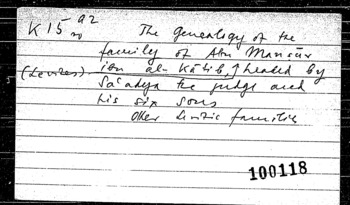 K 15 92 The genealogy of the
family of Abu Mansūr
(Levites) ibn al-Kātib, headed by
Sa'adya the judge and
his six sons
Other Levitic families
100118